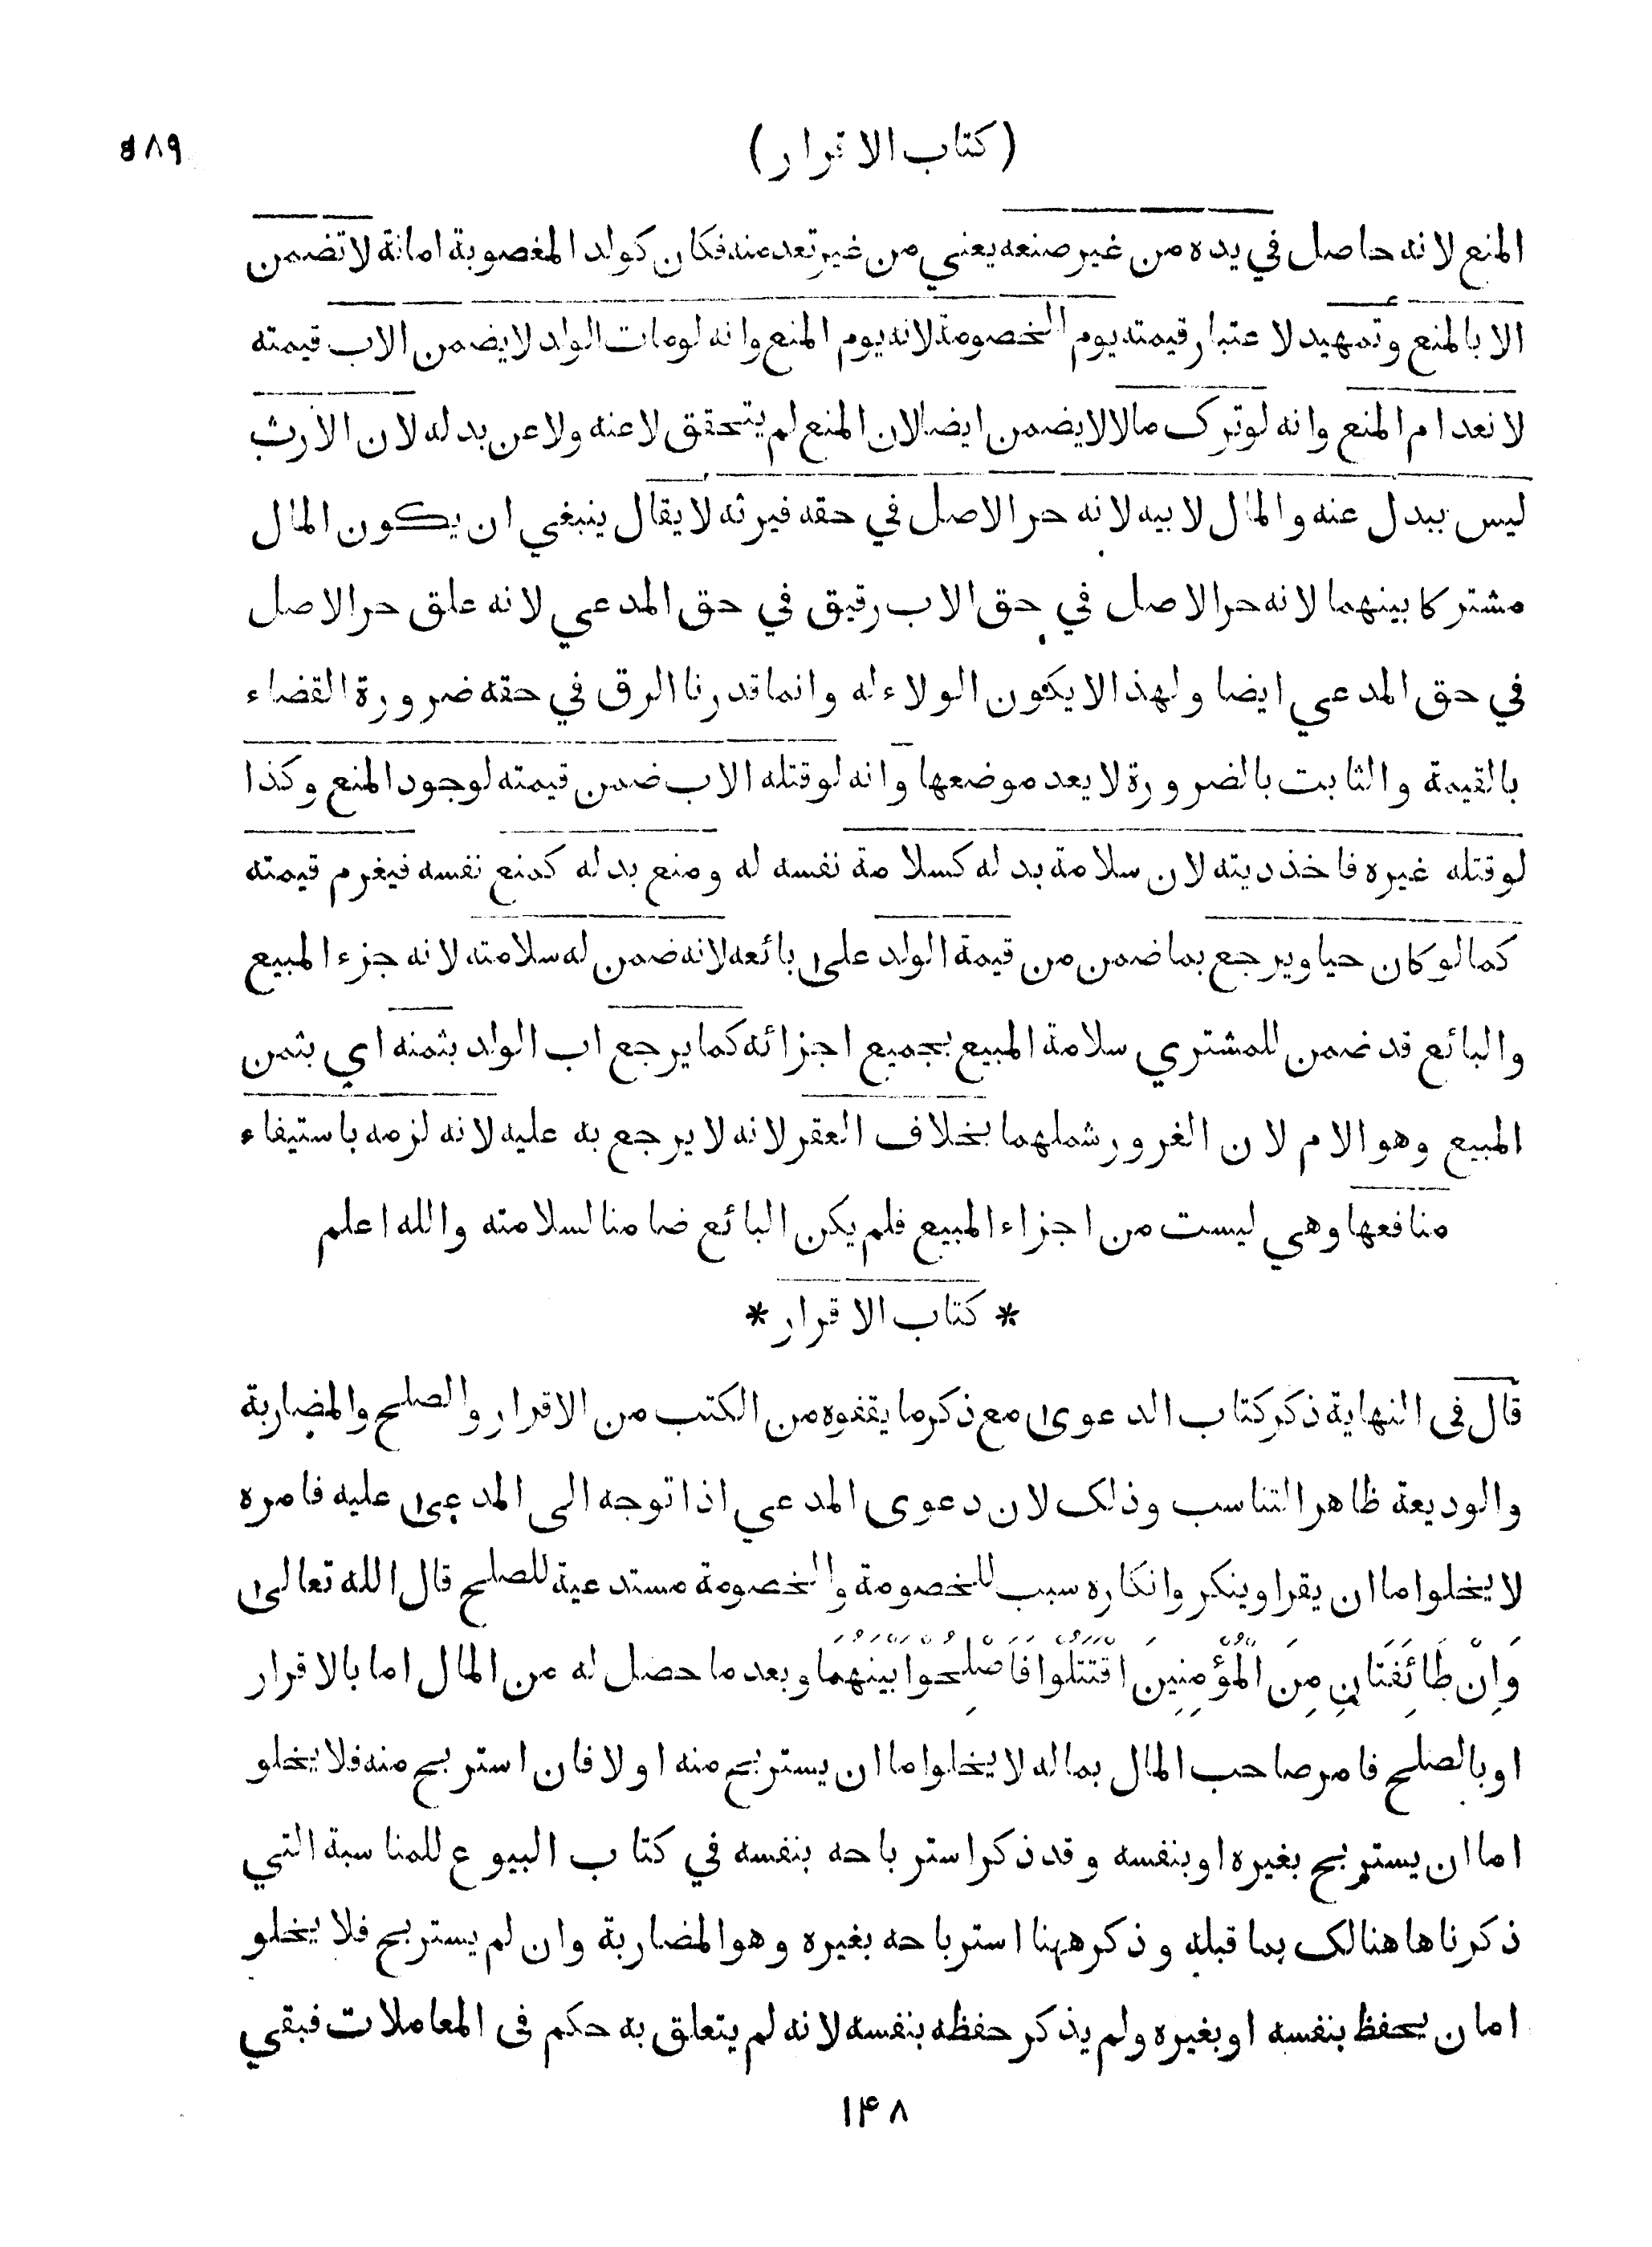 (كتاب الاقرار)
٥٨٩
المنع لانه حاصل في يده من غير صنعه يعني من غير تعد منه فكان كولد المغصوبة امانة لا تضمن
الا بالمنع وتمهيد لا عتبار قيمته يوم الخصومة لانه يوم المنع وانه لومات الولد لا يضمن الاب قيمته
لانعدام المنع وانه لوترك مالا لا يضمن ايضا لان المنع لم يتحقق لا عنه ولا عن بدله لان الارث
ليس ببدل عنه والمال لابيه لانه حر الاصل في حقه فيرثه لا يقال ينبغي ان يكون المال
مشتركا بينهما لانه حر الاصل في حق الاب رقيق في حق المدعي لانه علق حر الاصل
في حق المدعي ايضا ولهذا لا يكون الولاء له وانما قدرنا الرق في حقه ضرورة القضاء
بالقيمة والثابت بالضرورة لا يعد موضعها وانه لوقتله الاب ضمن قيمته لوجود المنع وكذا
لوقتله غيره فاخذ ديته لان سلامة بدله كسلامة نفسه له ومنع بدله كمنع نفسه فيغرم قيمته
كما لو كان حيا ويرجع بما ضمن من قيمة الولد على بائعه لانه ضمن له سلامته لانه جزء المبيع
والبائع قد ضمن للمشتري سلامة المبيع بجميع اجزائه كما يرجع اب الولد بثمنه اي بثمن
المبيع وهو الام لان الغرور شملهما بخلاف العقر لانه لا يرجع به عليه لانه لزمه باستيفاء
منافعها وهي ليست من اجزاء المبيع فلم يكن البائع ضامنا لسلامته والله اعلم
* كتاب الاقرار *
قال فى النهاية ذكر كتاب الدعوى مع ذكر ما يقفوه من الكتب من الاقرار والصلح والمضاربة
والوديعة ظاهر التناسب وذلك لان دعوى المدعي اذا توجه الى المدعى عليه فامره
لا يخلوا ما ان يقر اوينكر وانكاره سبب للخصومة والخصومة مستدعية للصلح قال الله تعالى
وَاِنْ طَائِفَتَانِ مِنَ الْمُؤْمِنِينَ اقْتَتَلُوا فَاَصْلِحُوا بَيْنَهُمَا وبعد ما حصل له من المال اما بالاقرار
اوبالصلح فامر صاحب المال بماله لا يخلوا ما ان يستربح منه اولا فان استربح منه فلا يخلو
اما ان يستربح بغيره اوبنفسه وقد ذكر استرباحه بنفسه في كتاب البيوع للمناسبة التي
ذكرناها هنالك بما قبله وذكر ههنا استرباحه بغيره وهو المضاربة وان لم يستربح فلا يخلو
امان يحفظ بنفسه اوبغيره ولم يذكر حفظه بنفسه لانه لم يتعلق به حكم فى المعاملات فبقي
١۴٨